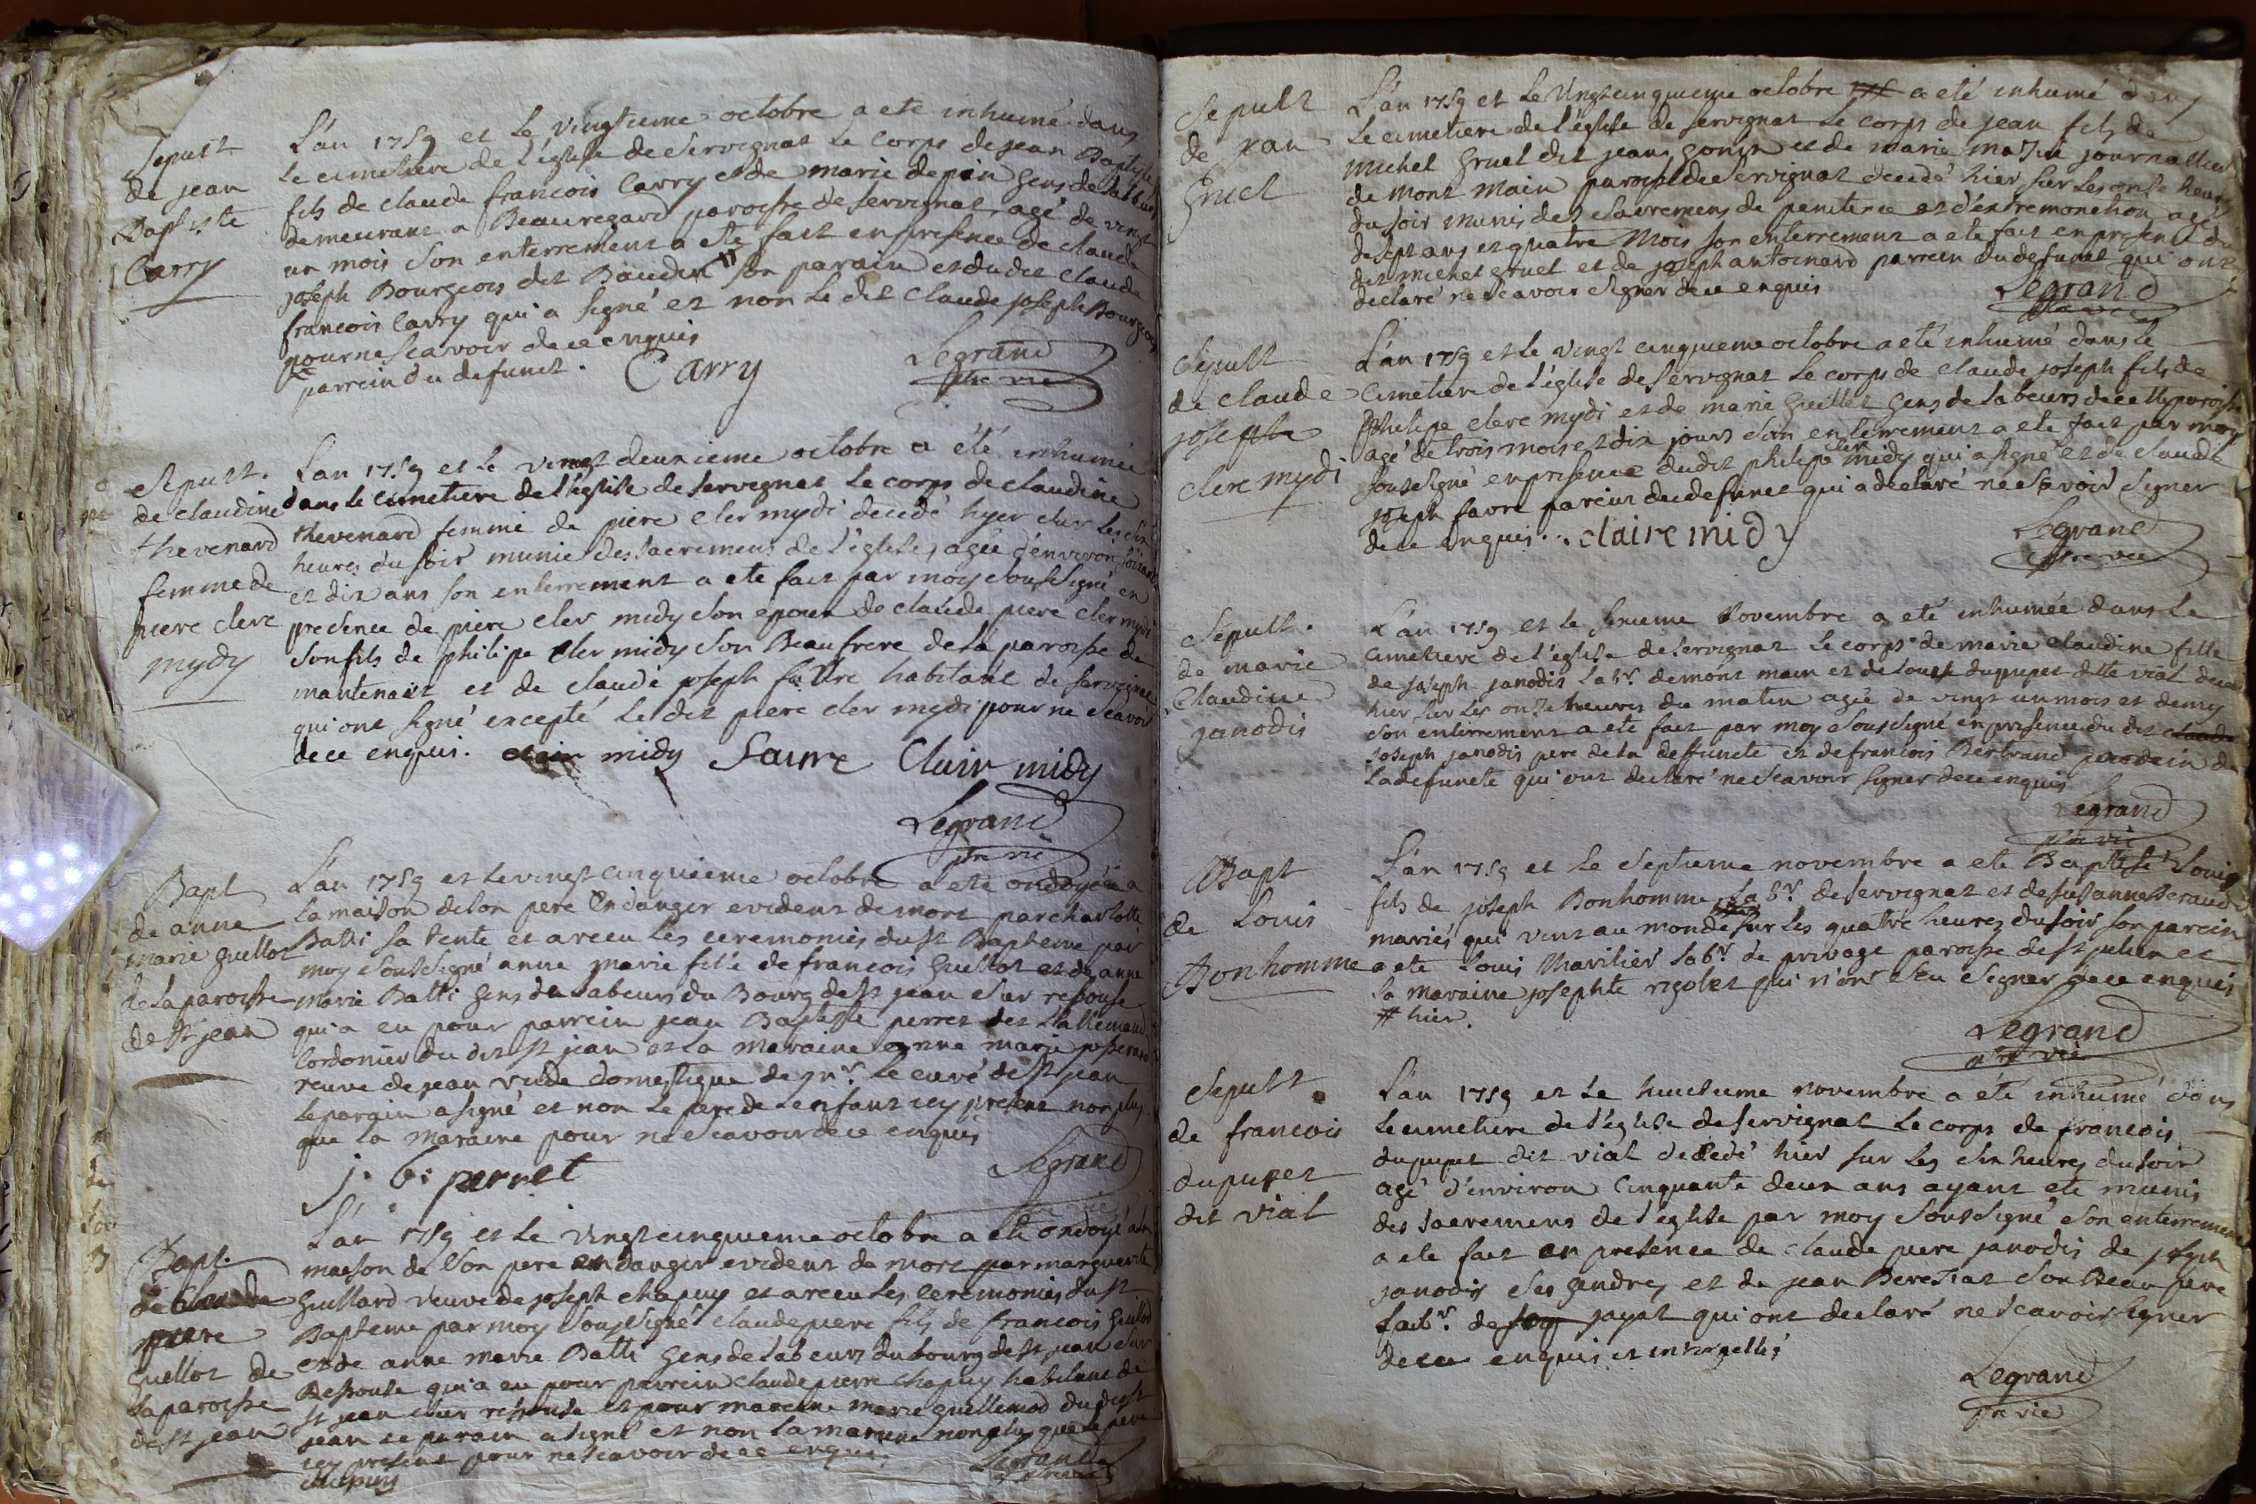 Sepult
de jean
Baptiste
Carry
L'an 1759 et le vingtieme octobre a eté inhumé dans
le cimetiere de l'église de Servignat le corps de jean Baptiste
fils de claude francois Carry et de marie depin gens de labeur
demeurant a Beauregard paroisse de servignat, agé de vingt
un mois son enterrement a eté fait en presence de claude
joseph Bourgeois dit Baudin # son parain et du dit claude
francois Carry qui a signé et non le dit claude joseph Bourgeois
pour ne scavoir de ce enquis
parrein du defunct. Carry Legrand
ptre vic
Sepult.
de claudine
thevenard
femme de
piere clerc
mydy
L'an 1759 et le vingt deuxieme octobre a été inhumée
dans le cimetiere de l'église de servignat le corps de claudine
thevenard femme de piere cler mydi decedé hyer sur les six
heures du soir munie des sacremens de l'église, agée d'environ soixante
et dix ans son enterrement a ete fait par moy soussigné en
presence de piere cler midy son epoux de claude piere cler mydi
son fils de philipe cler midy son Beaufrere de la paroisse de
mantenait et de claude joseph favre habitant de servignat
qui ont signé excepté le dit piere cler mydi pour ne scavoir
de ce enquis. clair midy faivre Clair midy
Legrand
ptre vic
Bapt
de anne
marie guillot
de la paroisse
de st jean
L'an 1759 et le vingt cinquieme octobre a eté ondoyée a
la maison de son pere en danger evident de mort par charlotte
Batti sa tente et a recu les ceremonies du st Bapteme par
moy soussigné anne marie fille de francois guillot et de anne
marie Batti gens de labeurs du Bourg de st jean sur resouse
qui a eu pour parrein jean Baptiste perret dit L'allemand
Cordonier du dit st jean et la maraine anne marie josserand
veuve de jean vuide domestique de mr. le curé de st jean
le parain a signé et non le pere de l'enfant icy present non plus
que la maraine pour ne scavoir de ce enquis
j. b. perret Legrand
Bapt.
de claude
piere
Guillot de
la paroisse
de st jean
L'an 1759 et le vingt cinquieme octobre a eté ondoyé a la
maison de son pere en danger evident de mort par marguerite
Guillard veuve de joseph chapuy et a recu les ceremonies du st
Bapteme par moy soussigné claude piere fils de francois guillot
et de anne marie Batti gens de labeurs du bourg de st jean sur
Ressouse qui a eu pour parrein claude pierre chapuy habitant de
st jean sur ressouse et pour maraine marie guillemod du dit st
jean le parain a signé et non la maraine non plus que le pere
icy present pour ne scavoir de ce enquis,
chapuy Legrand
ptre vic
Sepult
de jean
Gruel
L'an 1759 et le vingt cinquieme octobre a eté inhumé dans
le cimetiere de l'église de servignat le corps de jean fils de
michel gruel dit jean gonin et de marie mathie journalliers
de mont main paroisse de servignat decedé hier sur les onze heures
du soir munis des sacremens de penitence et d'extremonction agé
de sept ans et quatre mois son enterrement a eté fait en presence du
dit michel gruel et de joseph antoinard parrein du defunct qui ont
declaré ne scavoir signer de ce enquis Legrand
ptre vic
Sepult
de claude
joseph
clerc mydi
L'an 1759 et le vingt cinquieme octobre a eté inhumé dans le
cimetiere de l'église de servignat le corps de claude joseph fils de
Philipe clerc mydi et de marie Guillet gens de labeurs de cette paroisse
agé de trois mois et dix jours son enterrement a eté fait par moy
soussigné en presence du dit philipe cler midy qui a signé et de claude
joseph favre parein du defunct qui a declaré ne scavoir signer
de ce enquis. claire midy Legrand
ptre vic
Sepult.
de marie
Claudine
janodis
L'an 1759 et le sixieme Novembre a eté inhumée dans le
cimetiere de l'église de servignat le corps de marie claudine fille
de joseph janodis labr. de mont main et de louise dupupet ditte vial decedé
hier sur les onze heures du matin agée de vingt un mois et demy
son enterrement a eté fait par moy soussigné en presence du dit claude
joseph janodis pere de la deffuncte et de francois Bertrand parrein de
la defuncte qui ont declaré ne scavoir signer de ce enquis
Legrand
ptre vic
Bapt
de Louis
Bonhomme
L'an 1759 et le septieme novembre a eté Baptisé Louis
fils de joseph Bonhomme labr. de servignat et de susanne Beraud
mariés qui vint au monde # sur les quatre heures du soir son parein
a eté Louis Marilier labr. de privage paroisse de st julien et
sa maraine josephte rigolet qui n'ont sceu signer de ce enquis
# hier.
Legrand
ptre vic
Sepult.
de francois
dupupet
dit vial
L'an 1759 et le huictieme novembre a eté inhumé dans
le cimetiere de l'église de servignat le corps de francois
dupupet dit vial decedé hier sur les six heures du soir
agé d'environ cinquante deux ans ayant eté munis
des sacremens de l'église par moy soussigné son enterrement
a eté fait en presence de claude piere janodis de joseph
janodis ses gendres et de jean Bereziat son Beau pere
labr. de jayat qui ont declaré ne scavoir signer
de ce enquis et interpellés
Legrand
ptre vic